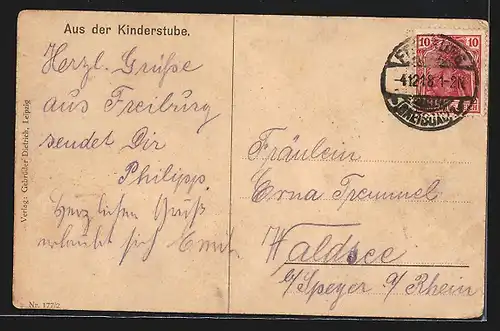 Aus der Kinderstube.
Herzl. Grüße
aus Freiburg
sendet Dir
Philipp.
Herzlichen Gruß
erlaubt sich Emil.
Verlag: Gebrüder Dietrich, Leipzig
Nr. 177/2
10 10
1-2N
Fräulein
Erna Tremmel
Waldsee
b/Speyer a/Rhein